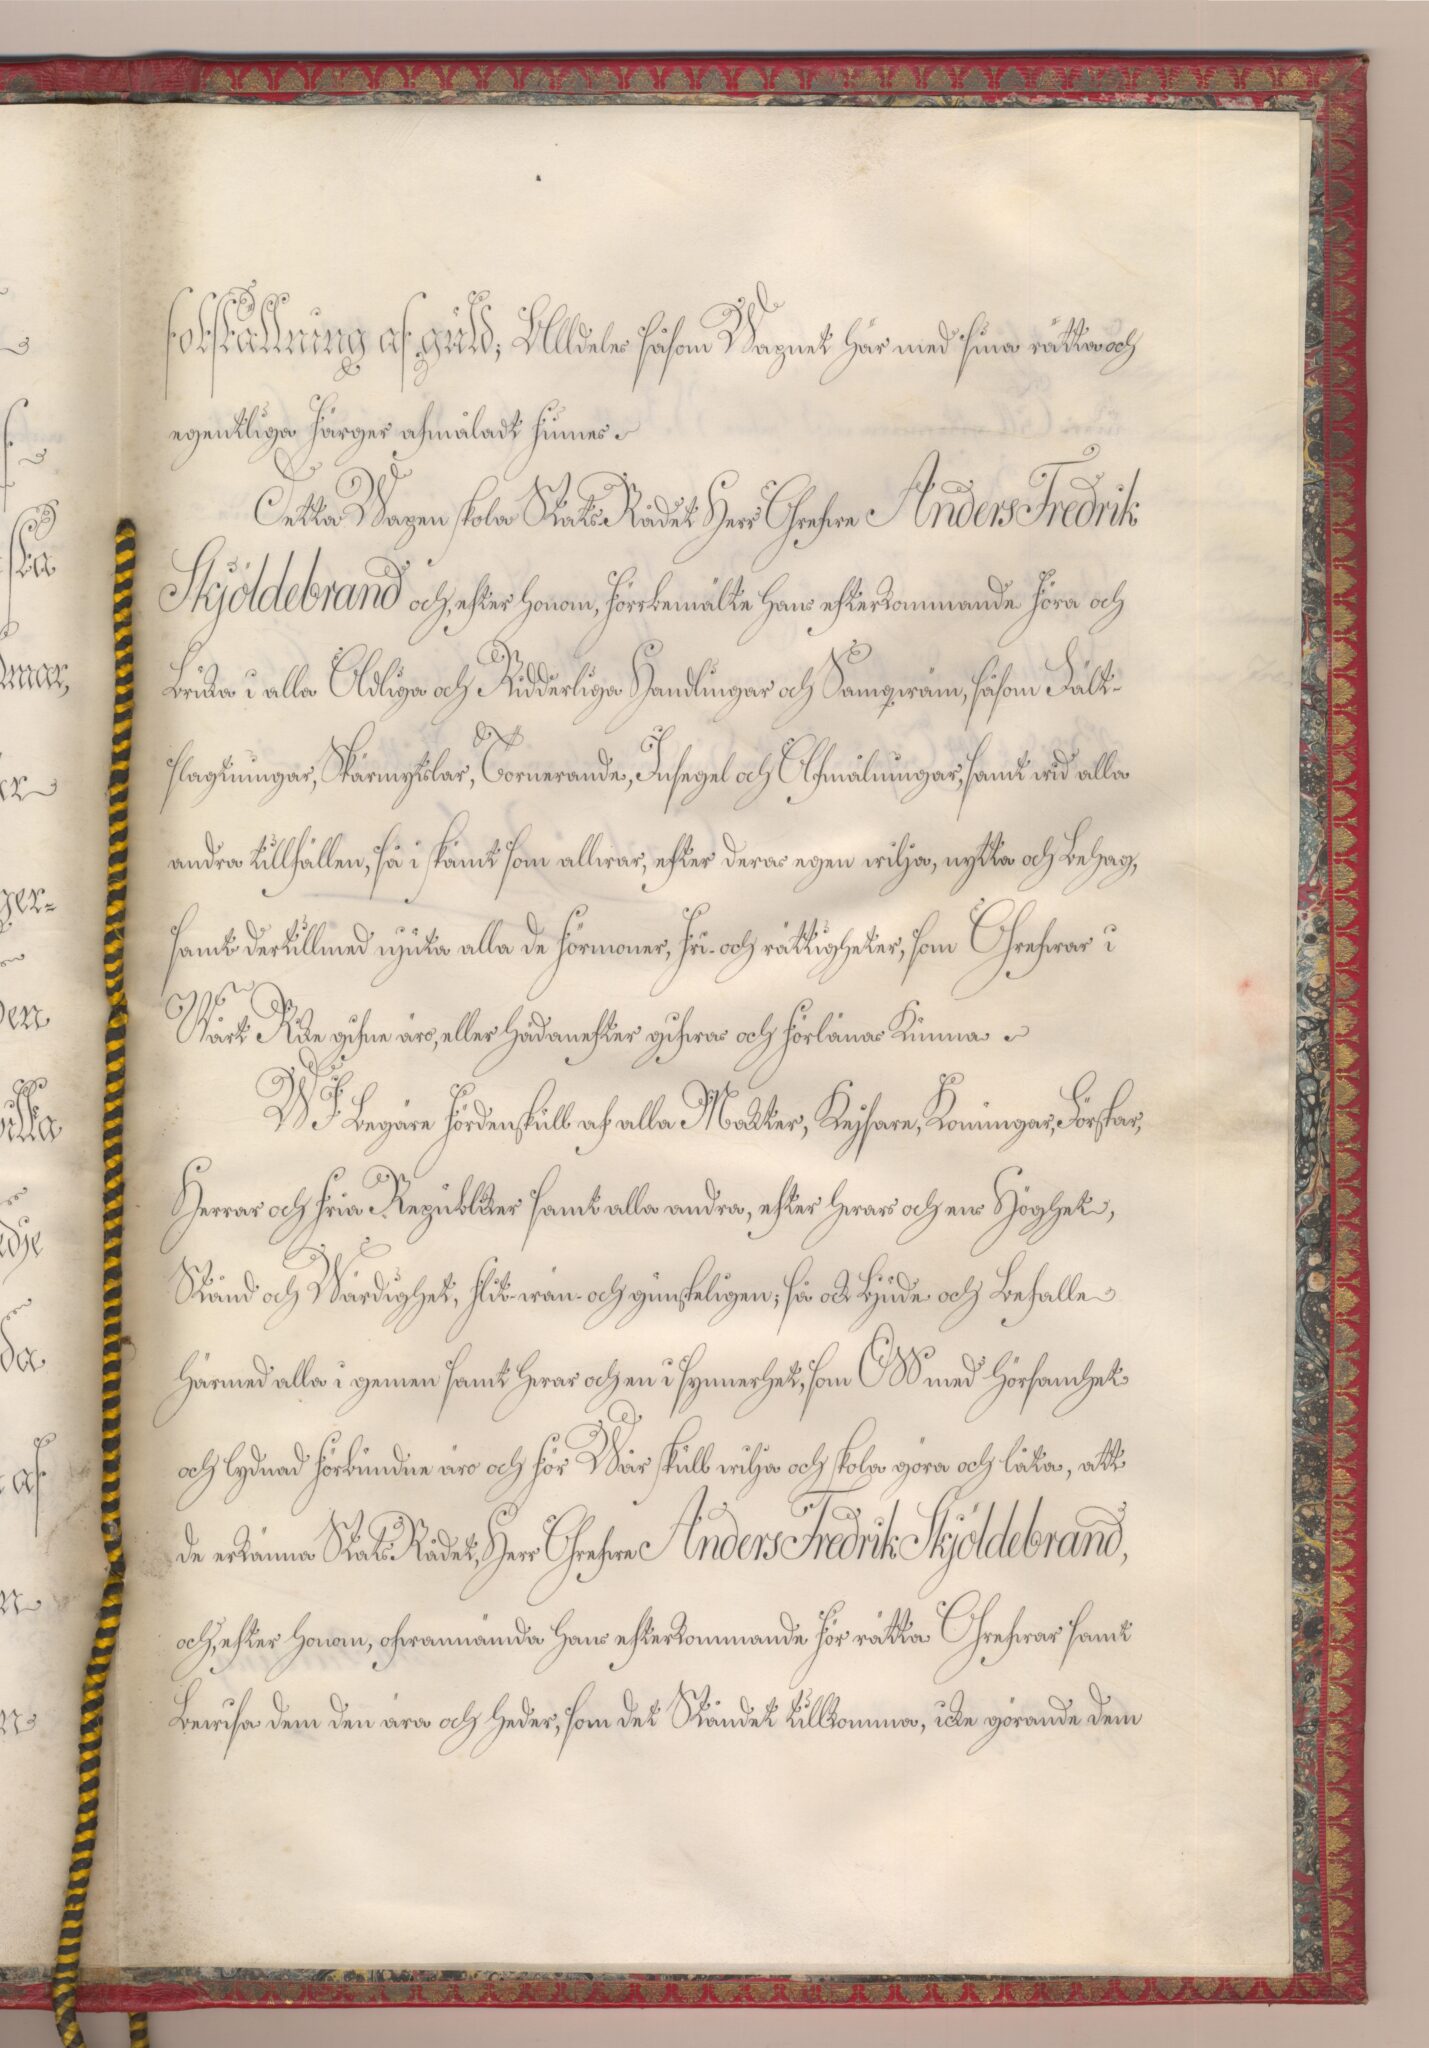 fotställning af guld; Alldeles såsom Wapnet här med sina rätta och
egentliga färger afmåladt finnes.
Detta Wapen skola StatsRådet Herr Grefwe Anders Fredrik
Skjöldebrand och, efter honom, förrbemälte hans efterkommande föra och
bruka i alla Adliga och Ridderliga Handlingar och Samqwäm, såsom Fält-
slagtningar, Skärmytslar, Tornerande, Insegel och Afmålningar, samt wid alla
andra tillfällen, så i skämt som allwar, efter deras egen wilja, nytta och behag,
samt dertillmed njuta alla de förmoner, fri- och rättigheter, som Grefwar i
Wårt Rike gifne äro, eller hädanefter gifwas och förlänas kunna.
WJ begäre fördenskull af alla Makter, Kejsare, Konungar, Förstar,
Herrar och fria Republiker samt alla andra, efter hwars och ens Höghet,
Stånd och Wärdighet, flit- wän- och gunsteligen; så ock bjude och befalle
härmed alla i gemen samt hwar och en i synnerhet, som OSS med hörsamhet
och lydnad förbundne äro och för Wår skull wilja och skola göra och låta, att
de erkänna StatsRådet, Herr Grefwe Anders Fredrik Skjöldebrand,
och, efter honom, ofwannämda hans efterkommande för rätta Grefwar samt
bewisa dem den ära och heder, som det Ståndet tillkomma, icke görande dem